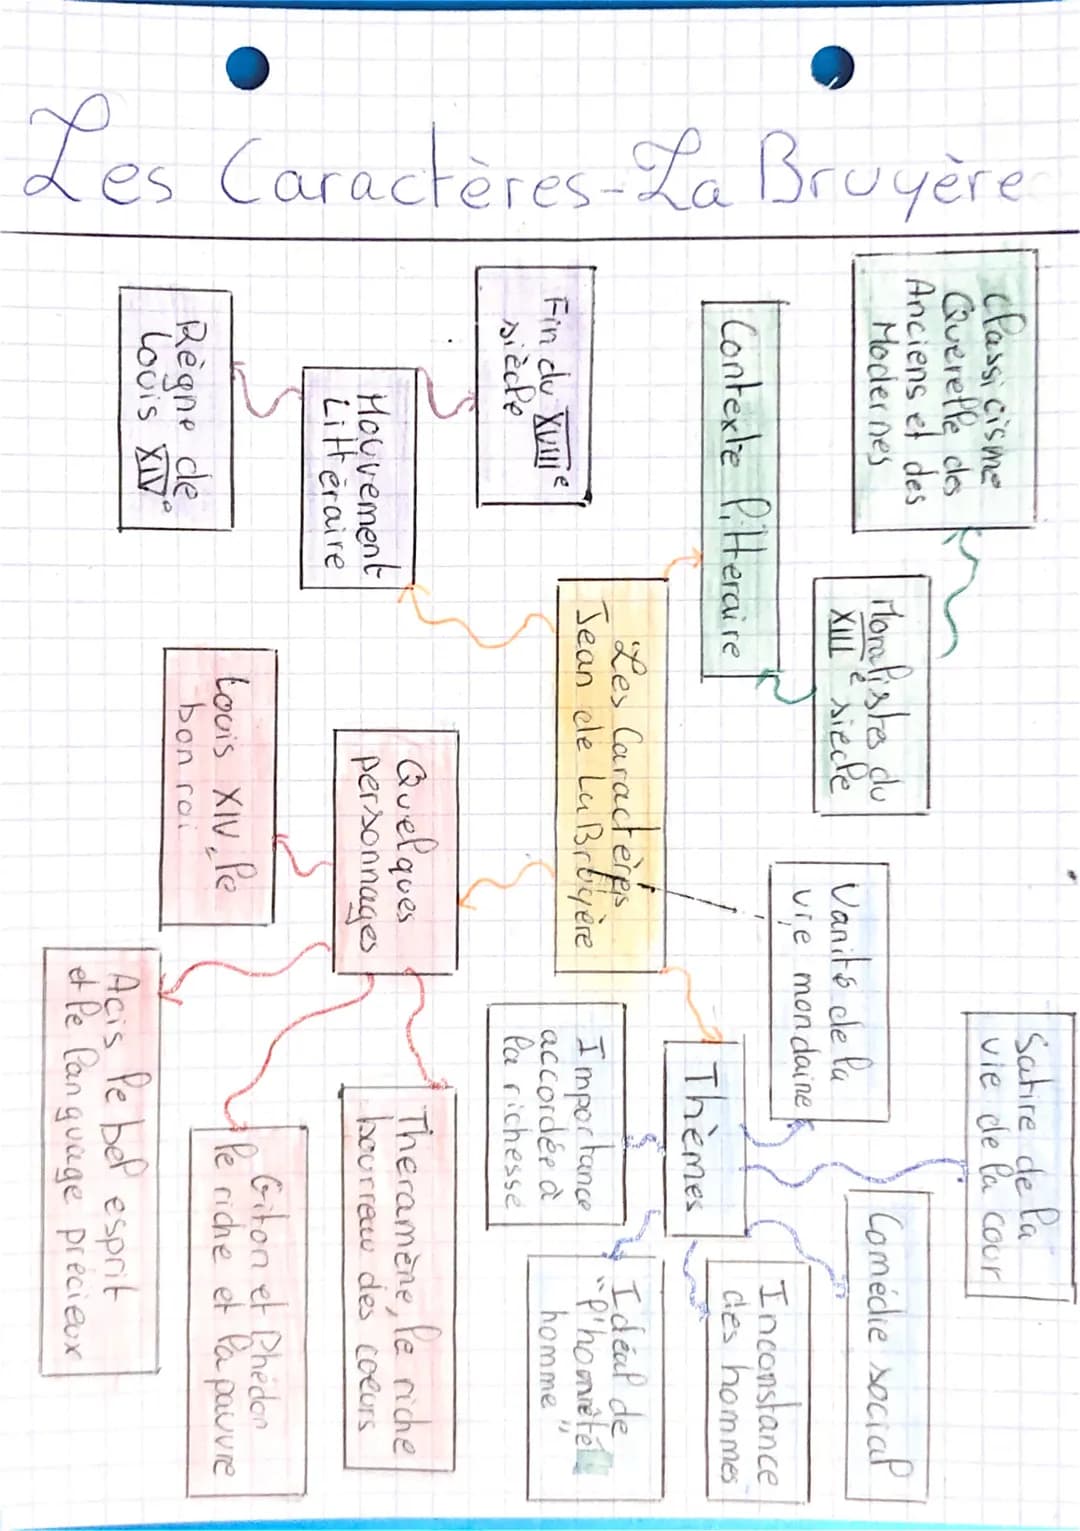 Les Caractères-La Bruyère
Classicisme
Querelle des
Anciens et des
Modernes
Moralistes du
XIII e siècle
Contexte litteraire
Fin du XVIII e
siècle
Mouvement
Littéraire
Règne de
Louis XIV e
Les Caractères
Jean de La Bruyère
Quelques
personnages
Louis XIV, le
bon roi
Acis le bel esprit
et le language précieux
Giton et Phédon
le riche et la pauvre
Theramène, le riche
bourreau des coeurs
Thèmes
Vanité de la
vie mondaine
Satire de la
vie de la cour
Comédie social
Inconstance
des hommes
Idéal de
"l'homnêté
homme"
Importance
accordée à
la richesse